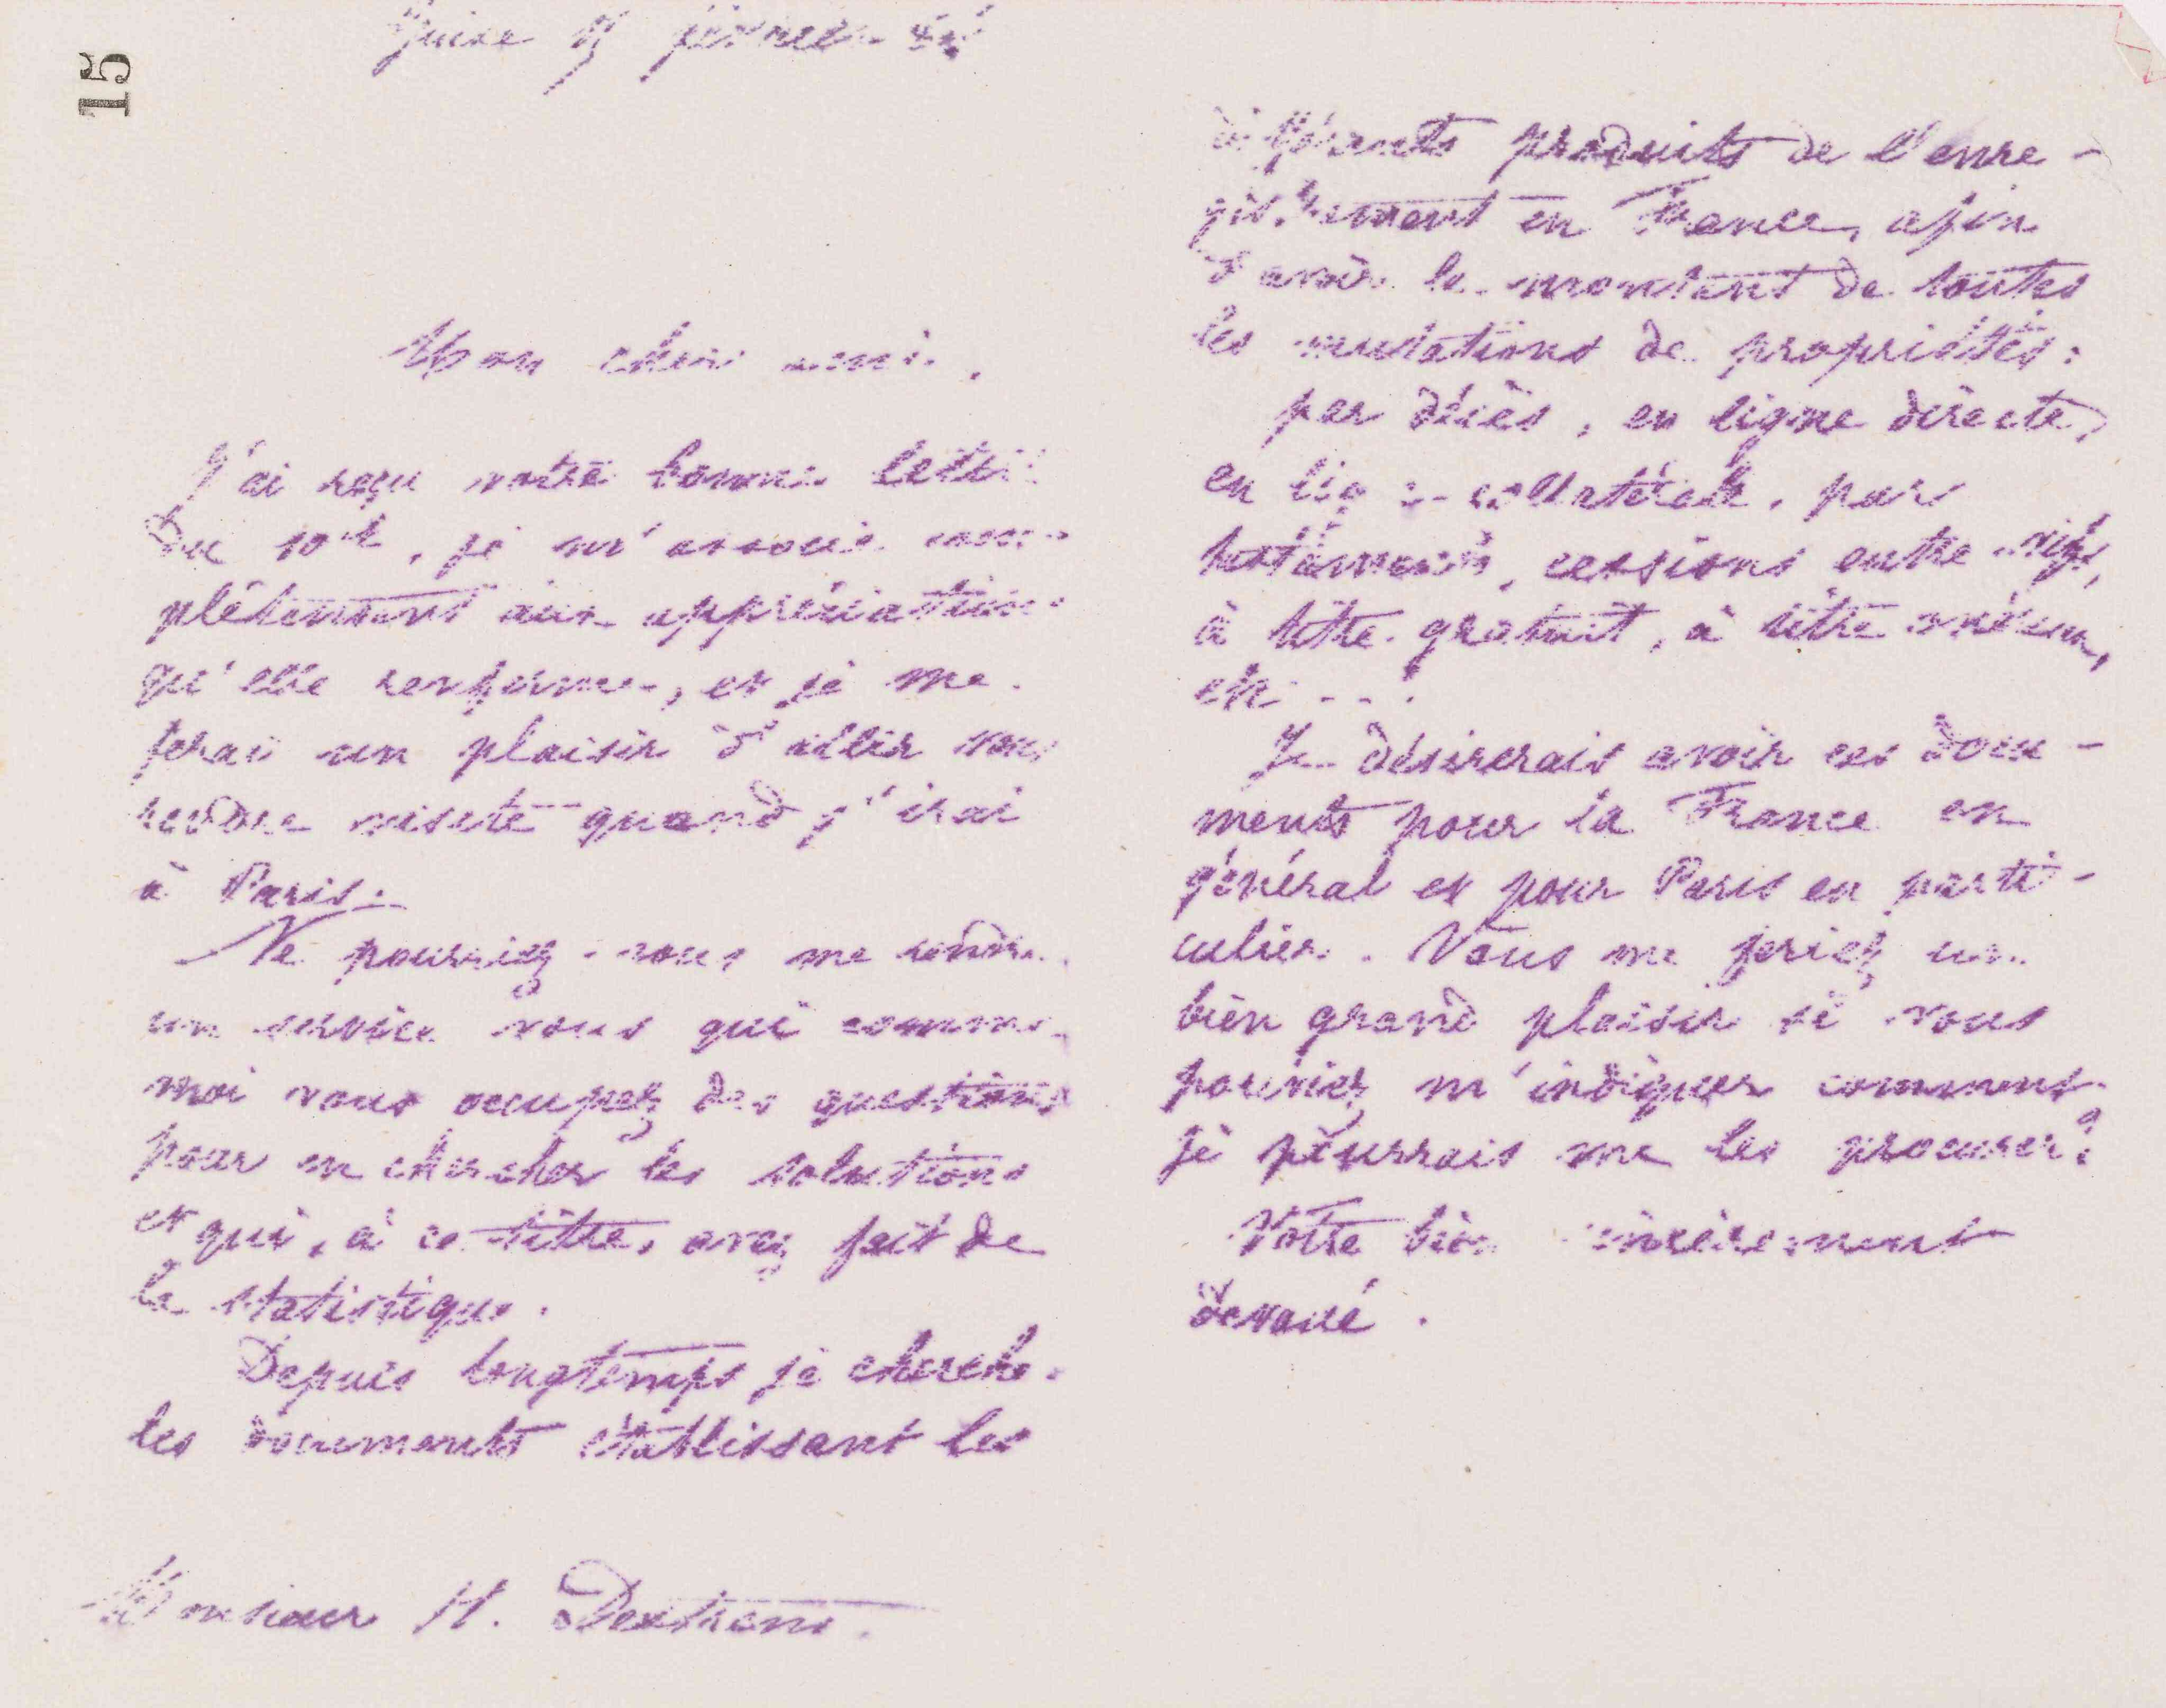 15
Guise 15 février
Mon cher ami,
J'ai reçu votre bonne lettre
du 10 ct, je m'associe com-
plètement aux appréciations
qu'elle renferme, et je me
ferai un plaisir d'aller vous
rendre visite quand j'irai
à Paris.
Ne pourriez-vous me rendre
un service vous qui comme
moi vous occupez des questions
pour en chercher les solutions
et qui, à ce titre, avez fait de
la statistique.
Depuis longtemps je cherche
les documents établissant les
Monsieur H.
différents produits de l'enre-
gistrement en France, afin
d'avoir le montant de toutes
les mutations de propriétés:
par décès, en ligne directe,
en ligne collatérale, par
testaments, cessions entre vifs,
à titre gratuit, à titre onéreux,
etc...
Je désirerais avoir ces docu-
ments pour la France en
général et pour Paris en parti-
culier. Vous me feriez un
bien grand plaisir si vous
pouviez m'indiquer comment
je pourrais me les procurer?
Votre bien sincèrement
dévoué.